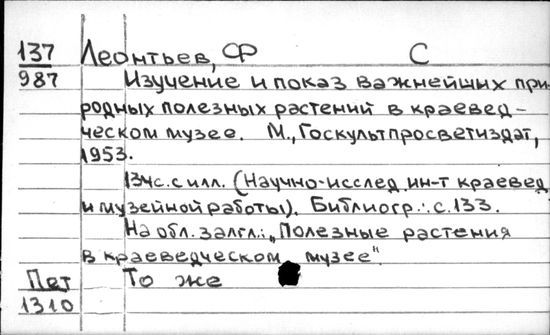 137 Леонтьев, Ф С
987 Изучение и показ важнейших при-
родных полезных растений в краевед-
ческом музее. М., Госкультпросветиздат,
1953.
134с. с илл. (Научно-исслед. ин-т краевед.
и музейной работы). Библиогр.: с. 133.
На обл. загл.: „Полезные растения
в краеведческом музее".
Пет То же
1310